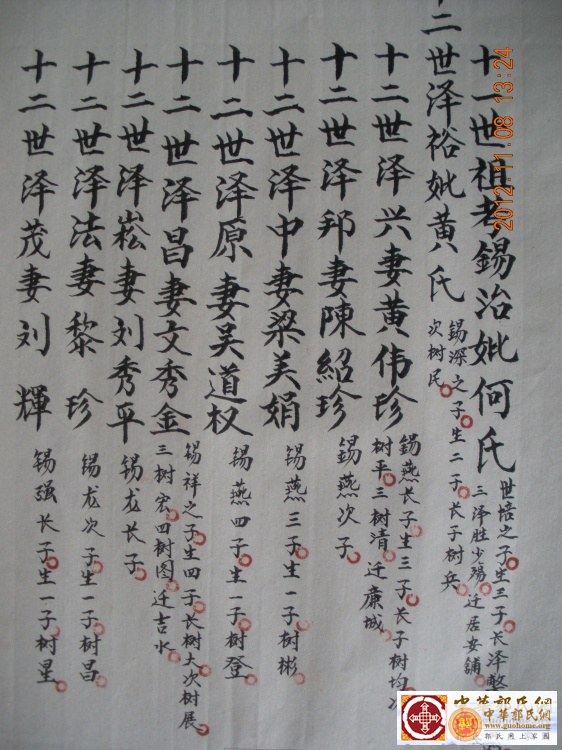 十一世祖考錫治妣何氏
世培之子生三子长泽整
三泽胜少殇迁居安舖
十二世泽裕妣黄氏
錫深之子生二子长子树兵
次树民
十二世泽兴妻黄伟珍
錫燕长子生三子长子树均次
树平三树清迁廉城
十二世泽邦妻陳紹珍
錫燕次子
十二世泽中妻梁美娟
锡燕三子生一子树彬
十二世泽原妻吴道权
锡燕四子生一子树登
十二世泽昌妻文秀金
锡祥之子生四子长树大次树展
三树宏四树图迁吉水
十二世泽崧妻刘秀平
锡龙长子
十二世泽法妻黎珍
锡龙次子生一子树昌
十二世泽茂妻刘輝
锡强长子生一子树星
2012.11.08 13:24
中華郭氏網
中華郭氏網
www.guohome.org
郭氏网上家園